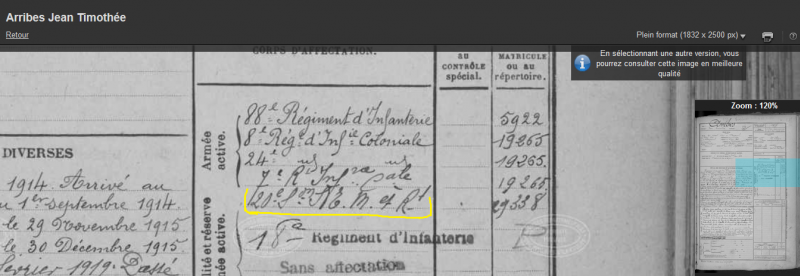 Arribes Jean Timothée
Retour
Plein format (1832 x 2500 px)
En sélectionnant une autre version, vous
pourrez consulter cette image en meilleure
qualité
Zoom : 120%
CORPS D'AFFECTATION.
AU
CONTRÔLE
spécial.
MATRICULE
OU AU
répertoire.
Armée
active.
88e Régiment d'Infanterie 5922
8e Régt d'Infie Coloniale 19265
24e 19265.
7e R Infrie Cale 19265
20e 19338
18e Régiment d'Infanterie
Sans affectation
lité et réserve
mée active.
DIVERSES
1914. Arrivé au
u 1er Septembre 1914.
le 29 Novembre 1915
le 30 Décembre 1915.
février 1919. Passé